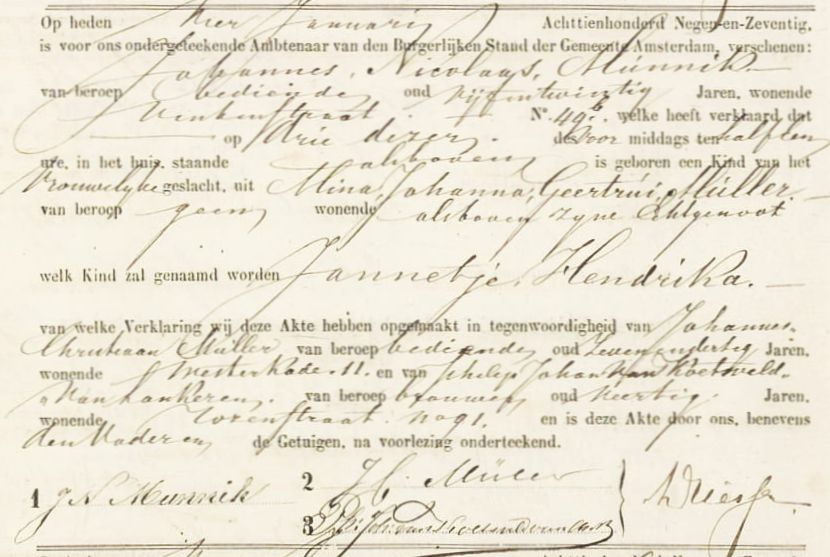 Op heden vier Januarij Achttienhonderd Negen-en-Zeventig,
is voor ons ondergeteekende Ambtenaar van den Burgerlijken Stand der Gemeente Amsterdam, verschenen:
Johannes, Nicolaas, Munnik
van beroep bediende oud vijfentwintig Jaren, wonende
Vinkenstraat N°. 49 welke heeft verklaard dat
op drie dezer des Voor middags ten half tien
ure, in het huis, staande alsboven is geboren een Kind van het
Vrouwelijke geslacht, uit Mina, Johanna, Geertrui, Müller
van beroep geen wonende alsboven zijne Echtgenoot
welk Kind zal genaamd worden Jannetje, Hendrika.
van welke Verklaring wij deze Akte hebben opgemaakt in tegenwoordigheid van Johannes
Christiaan Müller van beroep bediende oud Zeven endertig Jaren,
wonende Westerkade 11. en van Philip Johan van Koetsveld
van beroep oud Veertig Jaren,
wonende straat no 91. en is deze Akte door ons, benevens
den Vader en de Getuigen, na voorlezing onderteekend.
1 J N Munnik
2 J C. Müller
3